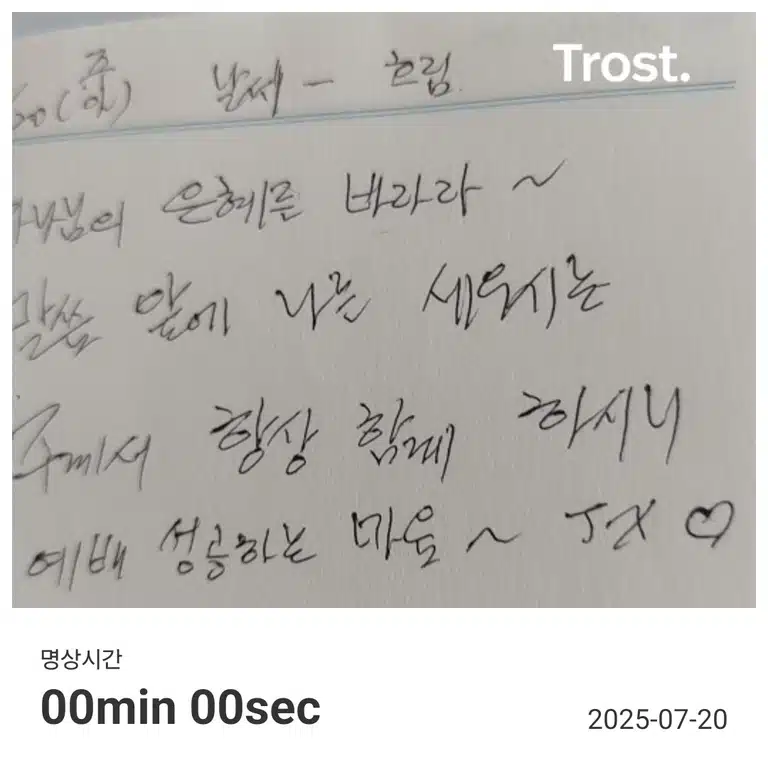 Trost.
20(주일) 날씨 - 흐림.
하나님의 은혜를 바라라 ~
말씀 앞에 나를 세우시는
주께서 항상 함께 하시니
예배 성공하는 마음 ~ JX ♡
명상시간
00min 00sec
2025-07-20